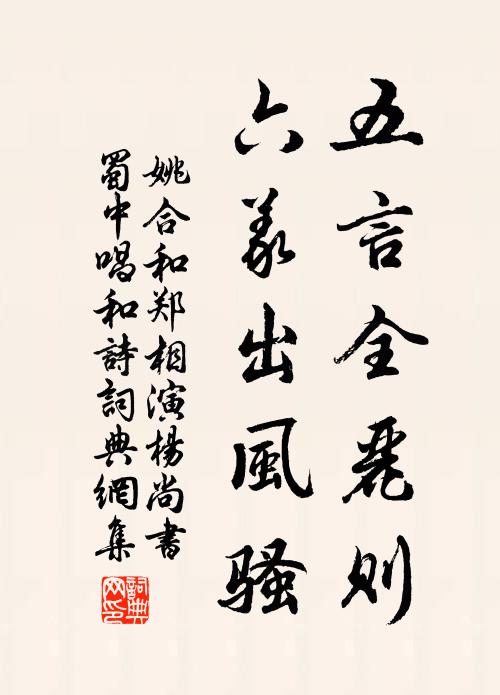 五言全麗則
六義出風騷
姚合和郑相演楊尚書
蜀中唱和詩詞典網集